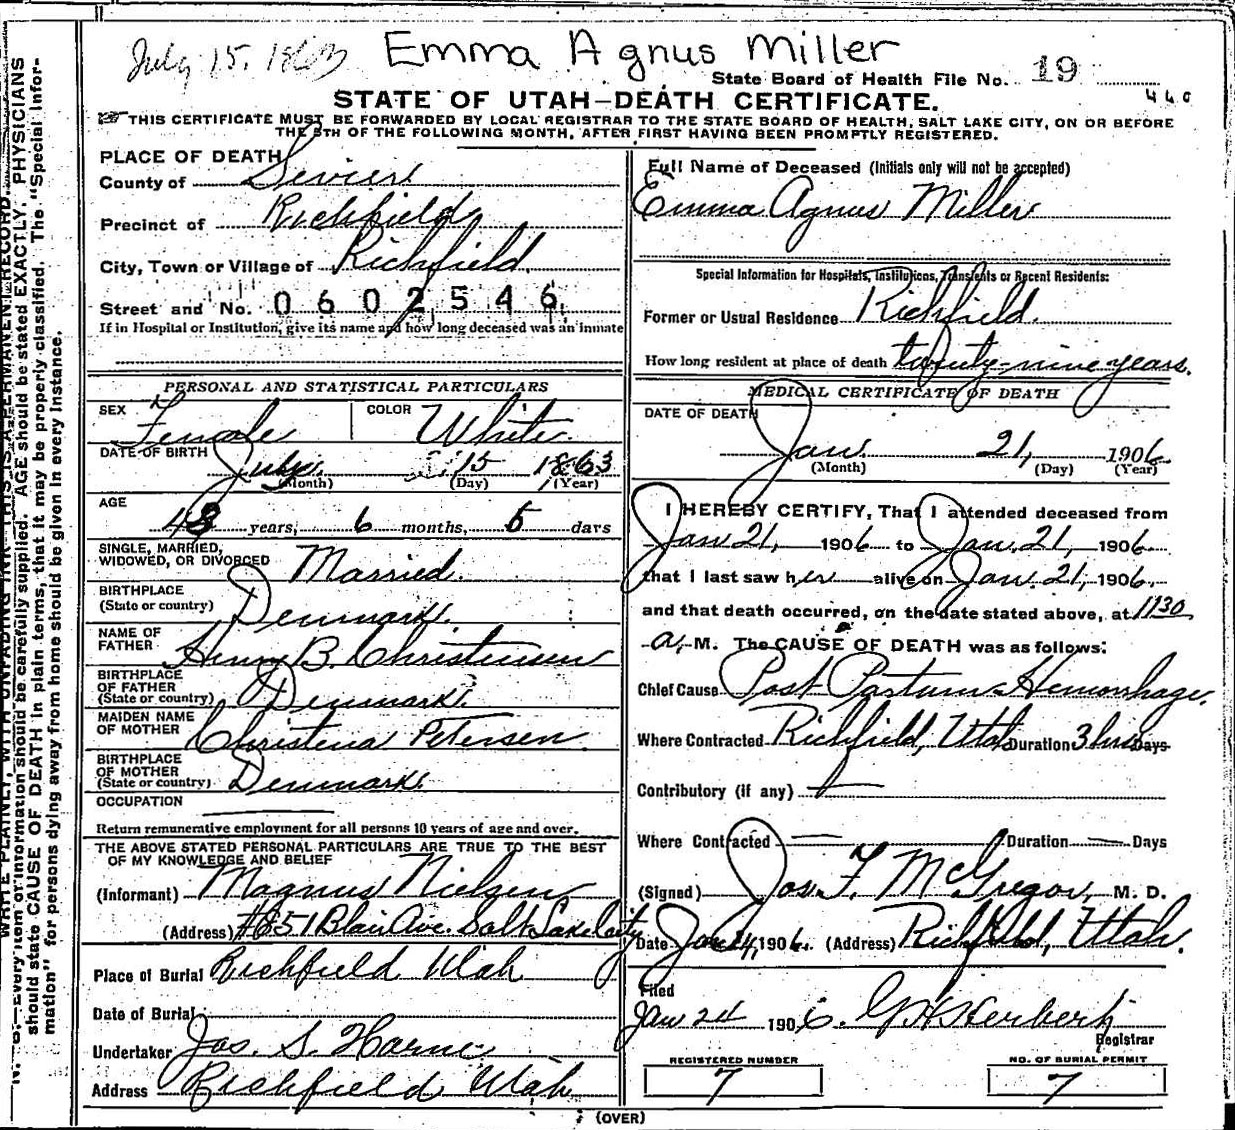 July 15, 1863 Emma Agnus Miller
State Board of Health File No. 19
460
STATE OF UTAH—DEATH CERTIFICATE.
THIS CERTIFICATE MUST BE FORWARDED BY LOCAL REGISTRAR TO THE STATE BOARD OF HEALTH, SALT LAKE CITY, ON OR BEFORE
THE 5TH OF THE FOLLOWING MONTH, AFTER FIRST HAVING BEEN PROMPTLY REGISTERED.
PLACE OF DEATH
County of Sevier
Precinct of Richfield
City, Town or Village of Richfield.
Street and No. 0602546
If in Hospital or Institution, give its name and how long deceased was an inmate
PERSONAL AND STATISTICAL PARTICULARS
SEX Female COLOR White
DATE OF BIRTH July 15 1863
(Month) (Day) (Year)
AGE
years, 6 months, 6 days
SINGLE, MARRIED,
WIDOWED, OR DIVORCED Married.
BIRTHPLACE
(State or country) Denmark.
NAME OF
FATHER Henry B. Christensen
BIRTHPLACE
OF FATHER
(State or country) Denmark.
MAIDEN NAME
OF MOTHER Christena Petersen.
BIRTHPLACE
OF MOTHER
(State or country) Denmark.
OCCUPATION
Return remunerative employment for all persons 10 years of age and over.
THE ABOVE STATED PERSONAL PARTICULARS ARE TRUE TO THE BEST
OF MY KNOWLEDGE AND BELIEF
(Informant) Magnus Nielsen
(Address) Blair Ave. Salt Lake City
Place of Burial Richfield Utah
Date of Burial
Undertaker Jos. S. Horne
Address Richfield Utah
Full Name of Deceased (Initials only will not be accepted)
Emma Agnus Miller
Special Information for Hospitals, Institutions, Transients or Recent Residents:
Former or Usual Residence Richfield.
How long resident at place of death twenty-nine years.
MEDICAL CERTIFICATE OF DEATH
DATE OF DEATH
Jan. 21, 1906
(Month) (Day) (Year)
I HEREBY CERTIFY, That I attended deceased from
Jan 21, 1906 to Jan. 21, 1906.
that I last saw her alive on Jan. 21, 1906,
and that death occurred, on the date stated above, at 1130
a. M. The CAUSE OF DEATH was as follows:
Chief Cause Post Partum Hemorrhage.
Where Contracted Richfield, Utah Duration 3 hrs Days
Contributory (if any)
Where Contracted Duration Days
(Signed) Jos. F. McGregor, M. D.
Date Jan 24, 1906. (Address) Richfield, Utah.
Filed
Jan 24 1906. G. H. Herbert
Registrar
REGISTERED NUMBER
7
NO. OF BURIAL PERMIT
7
(OVER)
WRITE PLAINLY, WITH UNFADING INK—THIS IS A PERMANENT RECORD.
N. B.—Every item of information should be carefully supplied. AGE should be stated EXACTLY. PHYSICIANS
should state CAUSE OF DEATH in plain terms, that it may be properly classified. The "Special Infor-
mation" for persons dying away from home should be given in every instance.